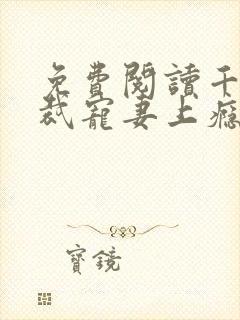 免費閱讀千
裁寵妻上癮
寶鏡